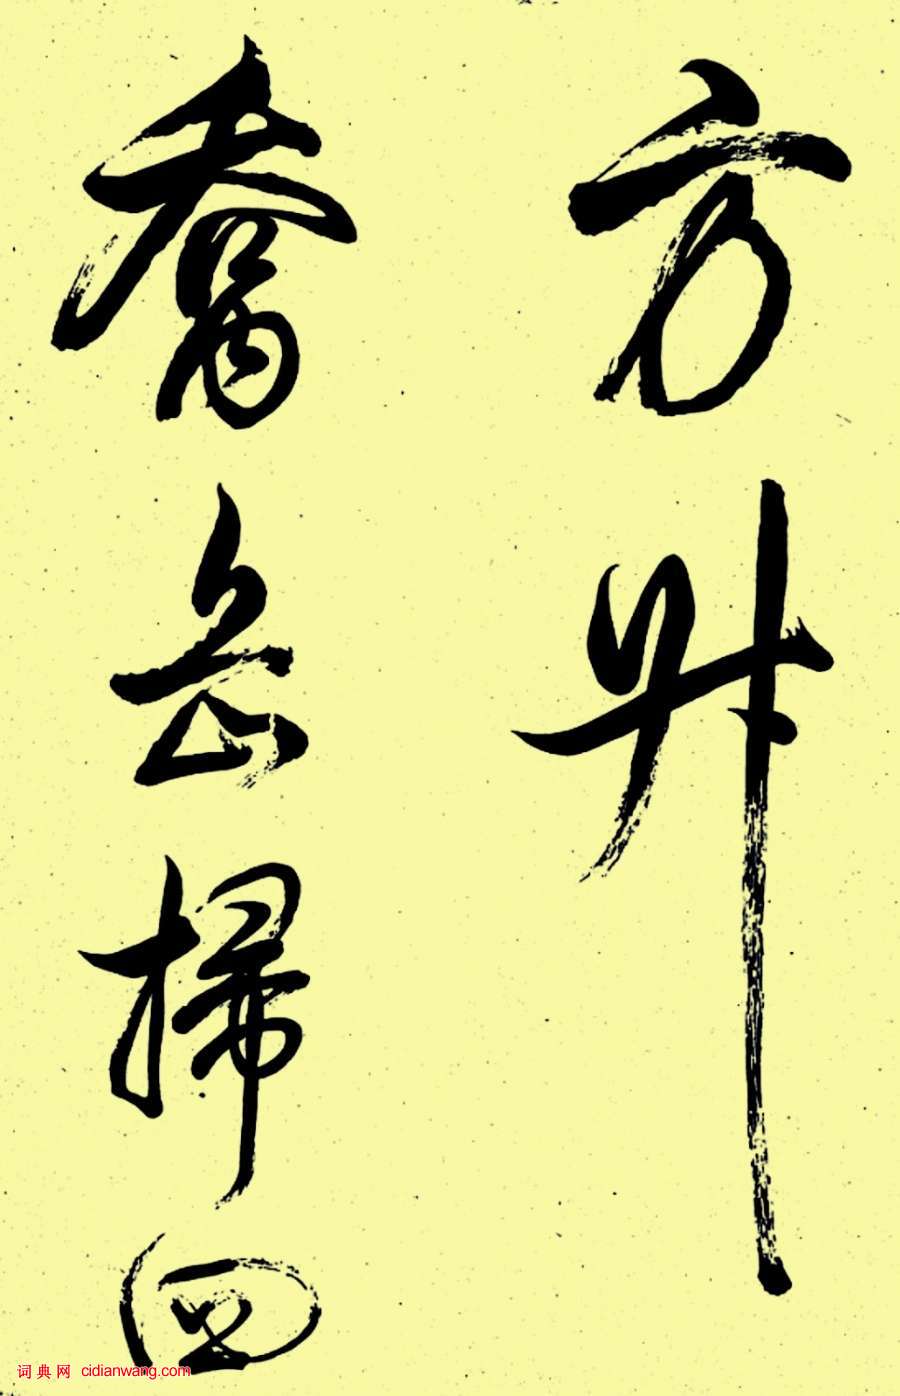 方升
喬岳掃四
词典网 cidianwang.com